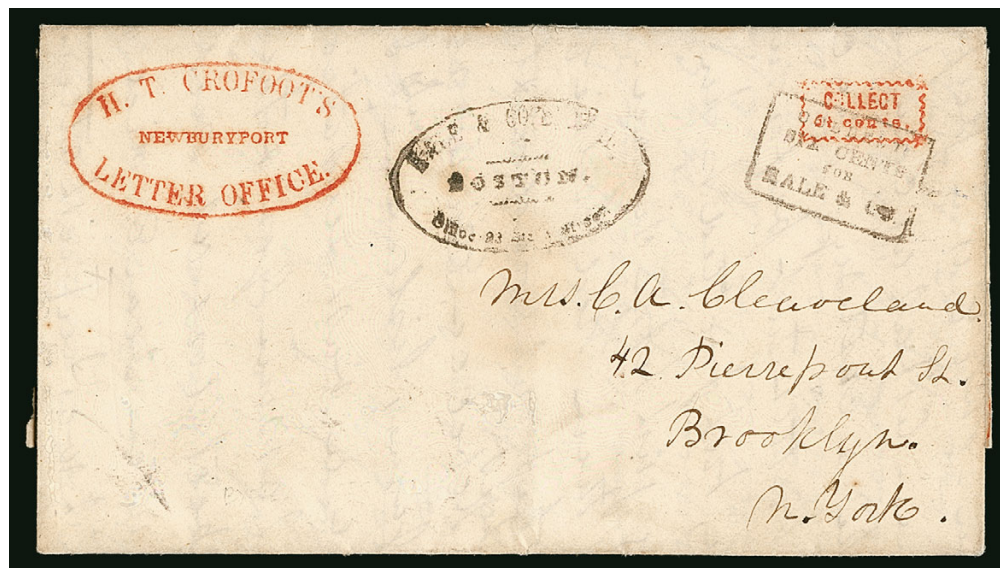 H. T. CROFOOT'S
NEWBURYPORT
LETTER OFFICE.
HALE & CO'S
BOSTON.
Office 23 Street
COLLECT
6¼ cents
SIX CENTS
FOR
HALE & Co.
Mrs. C. A. Cleaveland.
42 Pierrepont St.
Brooklyn.
N. York.